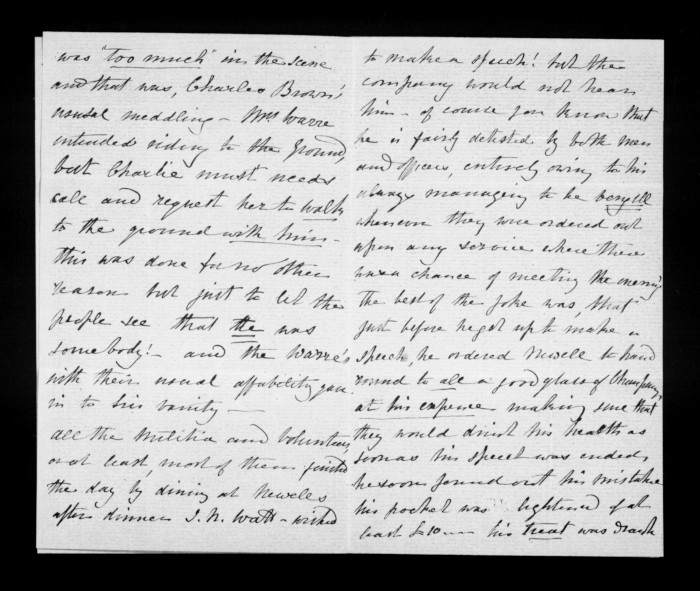 was "too much" in the scene
and that was, Charles Brown's
usual meddling - Mrs Warre
intended riding to the ground,
but Charlie must needs
call and request her to walk
to the ground with him -
this was done for no other
reason but just to let the
people see that he was
somebody! - and the Warre's
with their usual affability gave
in to his vanity -
all the Militia and Volunteers,
or at least, most of them finished
the day by dining at Newells
after dinner I. N. Watt - wished
to make a speech! but the
company would not hear
him - of course you know that
he is fairly detested by both men
and officers, entirely owing to his
always managing to be very ill
whenever they were ordered out
upon any service where there
was a chance of meeting the enemy
the best of the joke was, that
just before he got up to make a
speech, he ordered Newell to hand
round to all a good glass of Champagne,
at his expense making sure that
they would drink his health as
soon as his speech was ended,
he soon found out his mistake
his pocket was lightened of at
least £10 his treat was drank